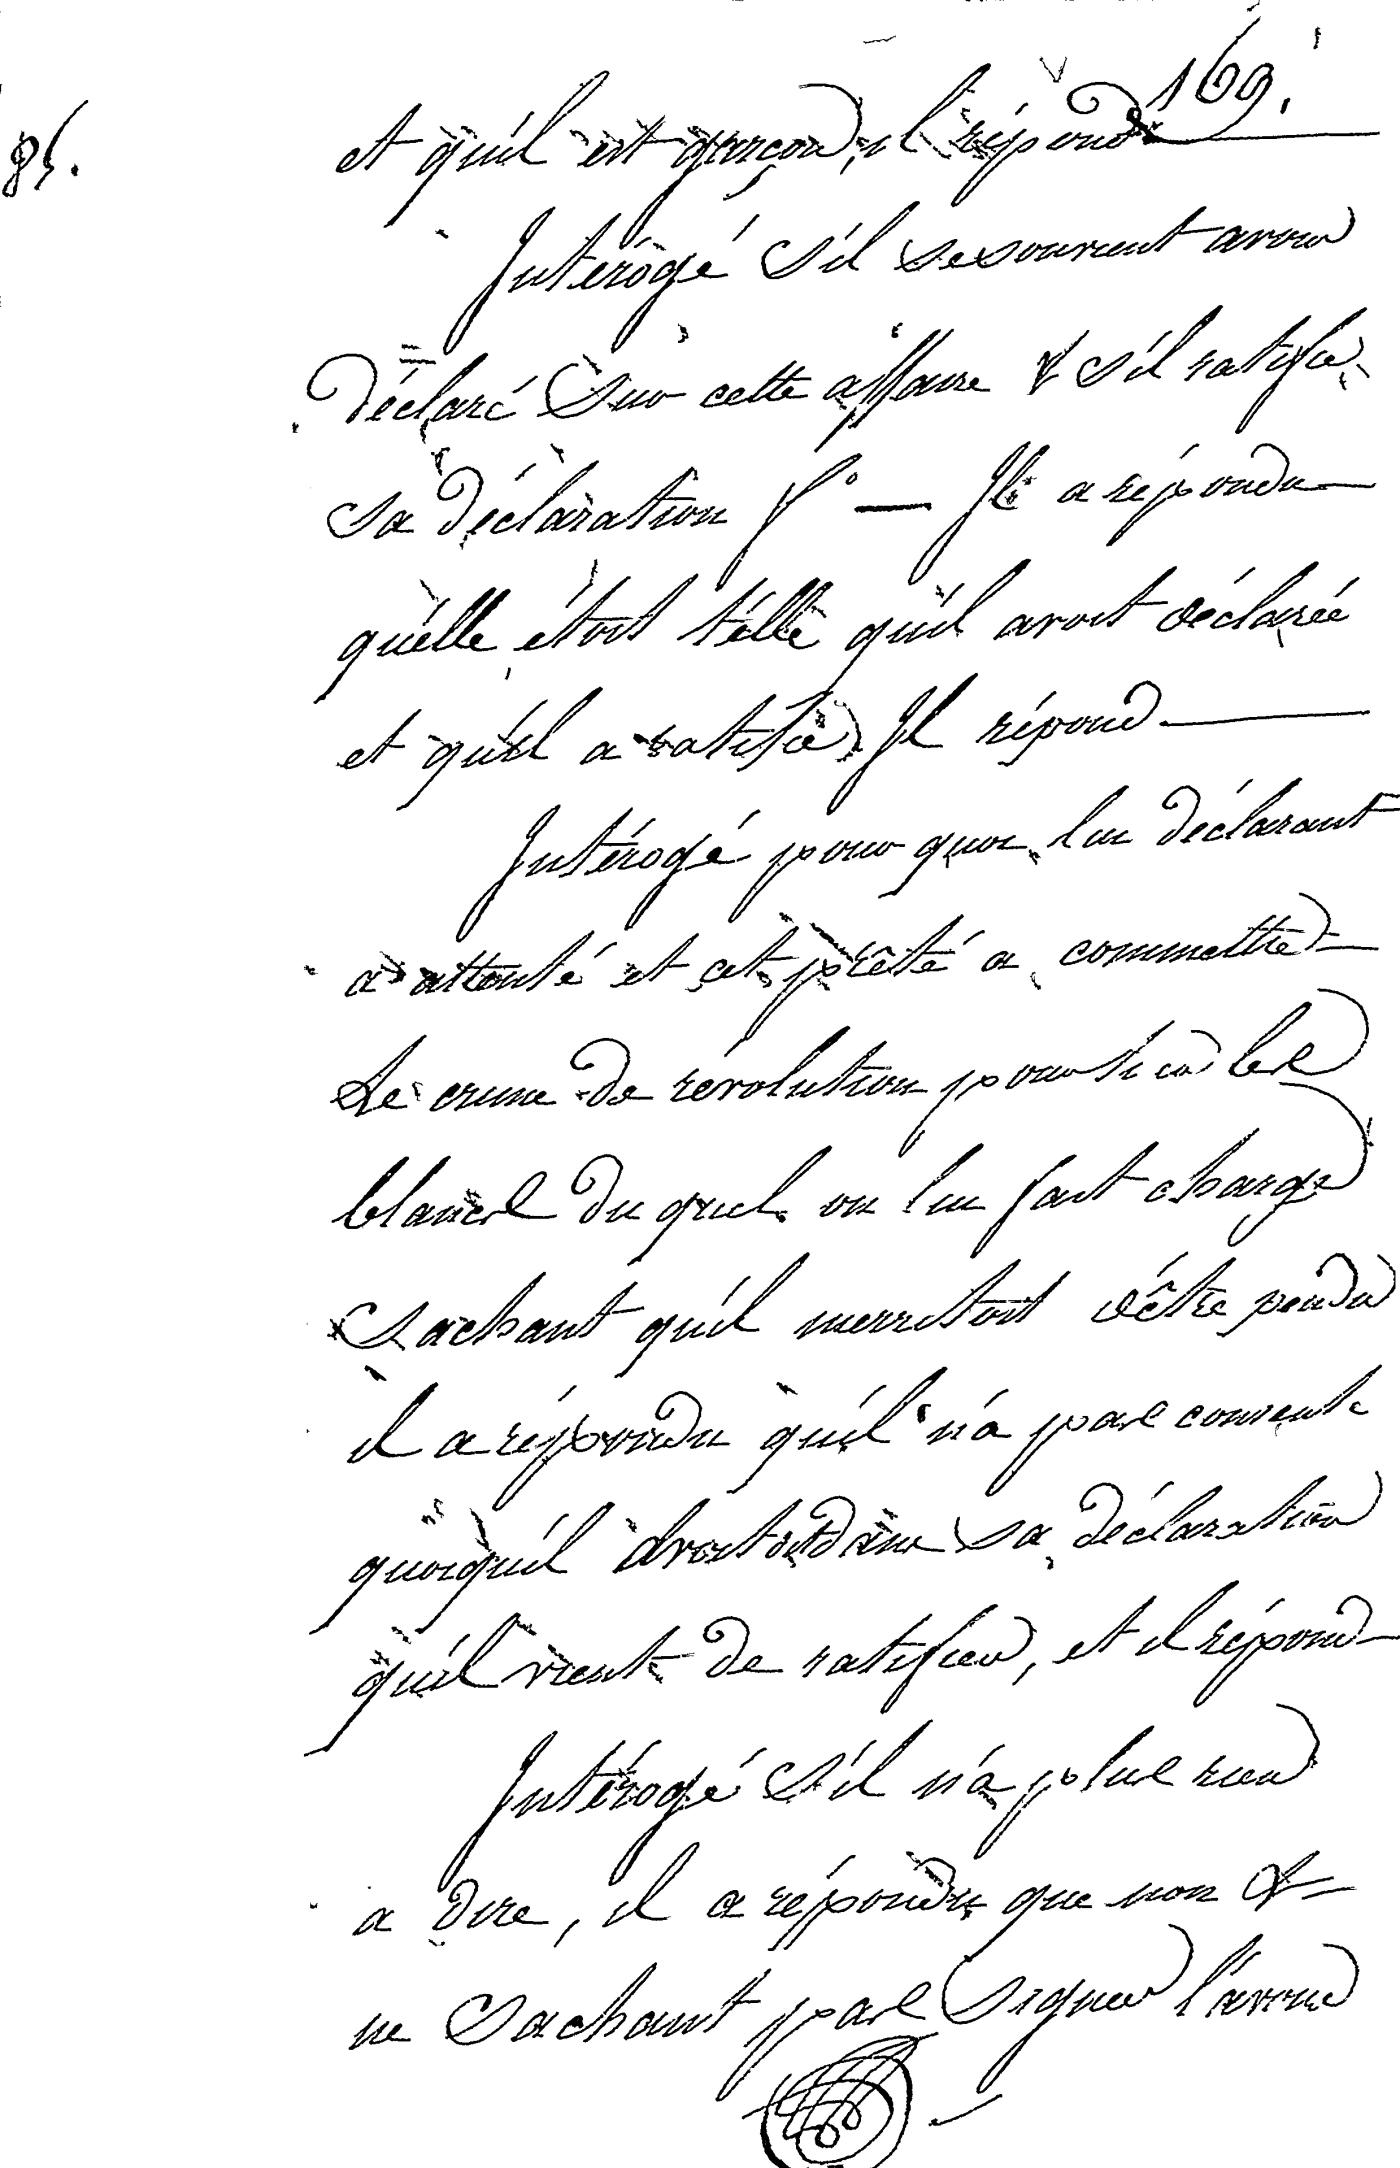 169.
85.
et qu'il est garçon, il répond
Intérogé s'il se souvient avoir
déclaré Sur cette affaire & s'il ratifie
sa déclaration — Il a répondu
qu'elle étoit t'éllé qu'il avoit déclarée
et qu'il a ratifié, Il répond
Intérogé pour quoi lui déclarant
a attenté et s'et prêté a commettre
Le crime de révolution pour tüer les
blancs du quel on lui fait charge
Sachant qu'il merritoit d'être pendu
il a répondu qu'il n'a pas consenti
quoiqu'il dans sa déclaration
qu'il vient de ratifier, et il répond
Intérogé s'il n'a plus rien
a dire, il a répondu que non &
ne Sachant pas Signer l'avoué